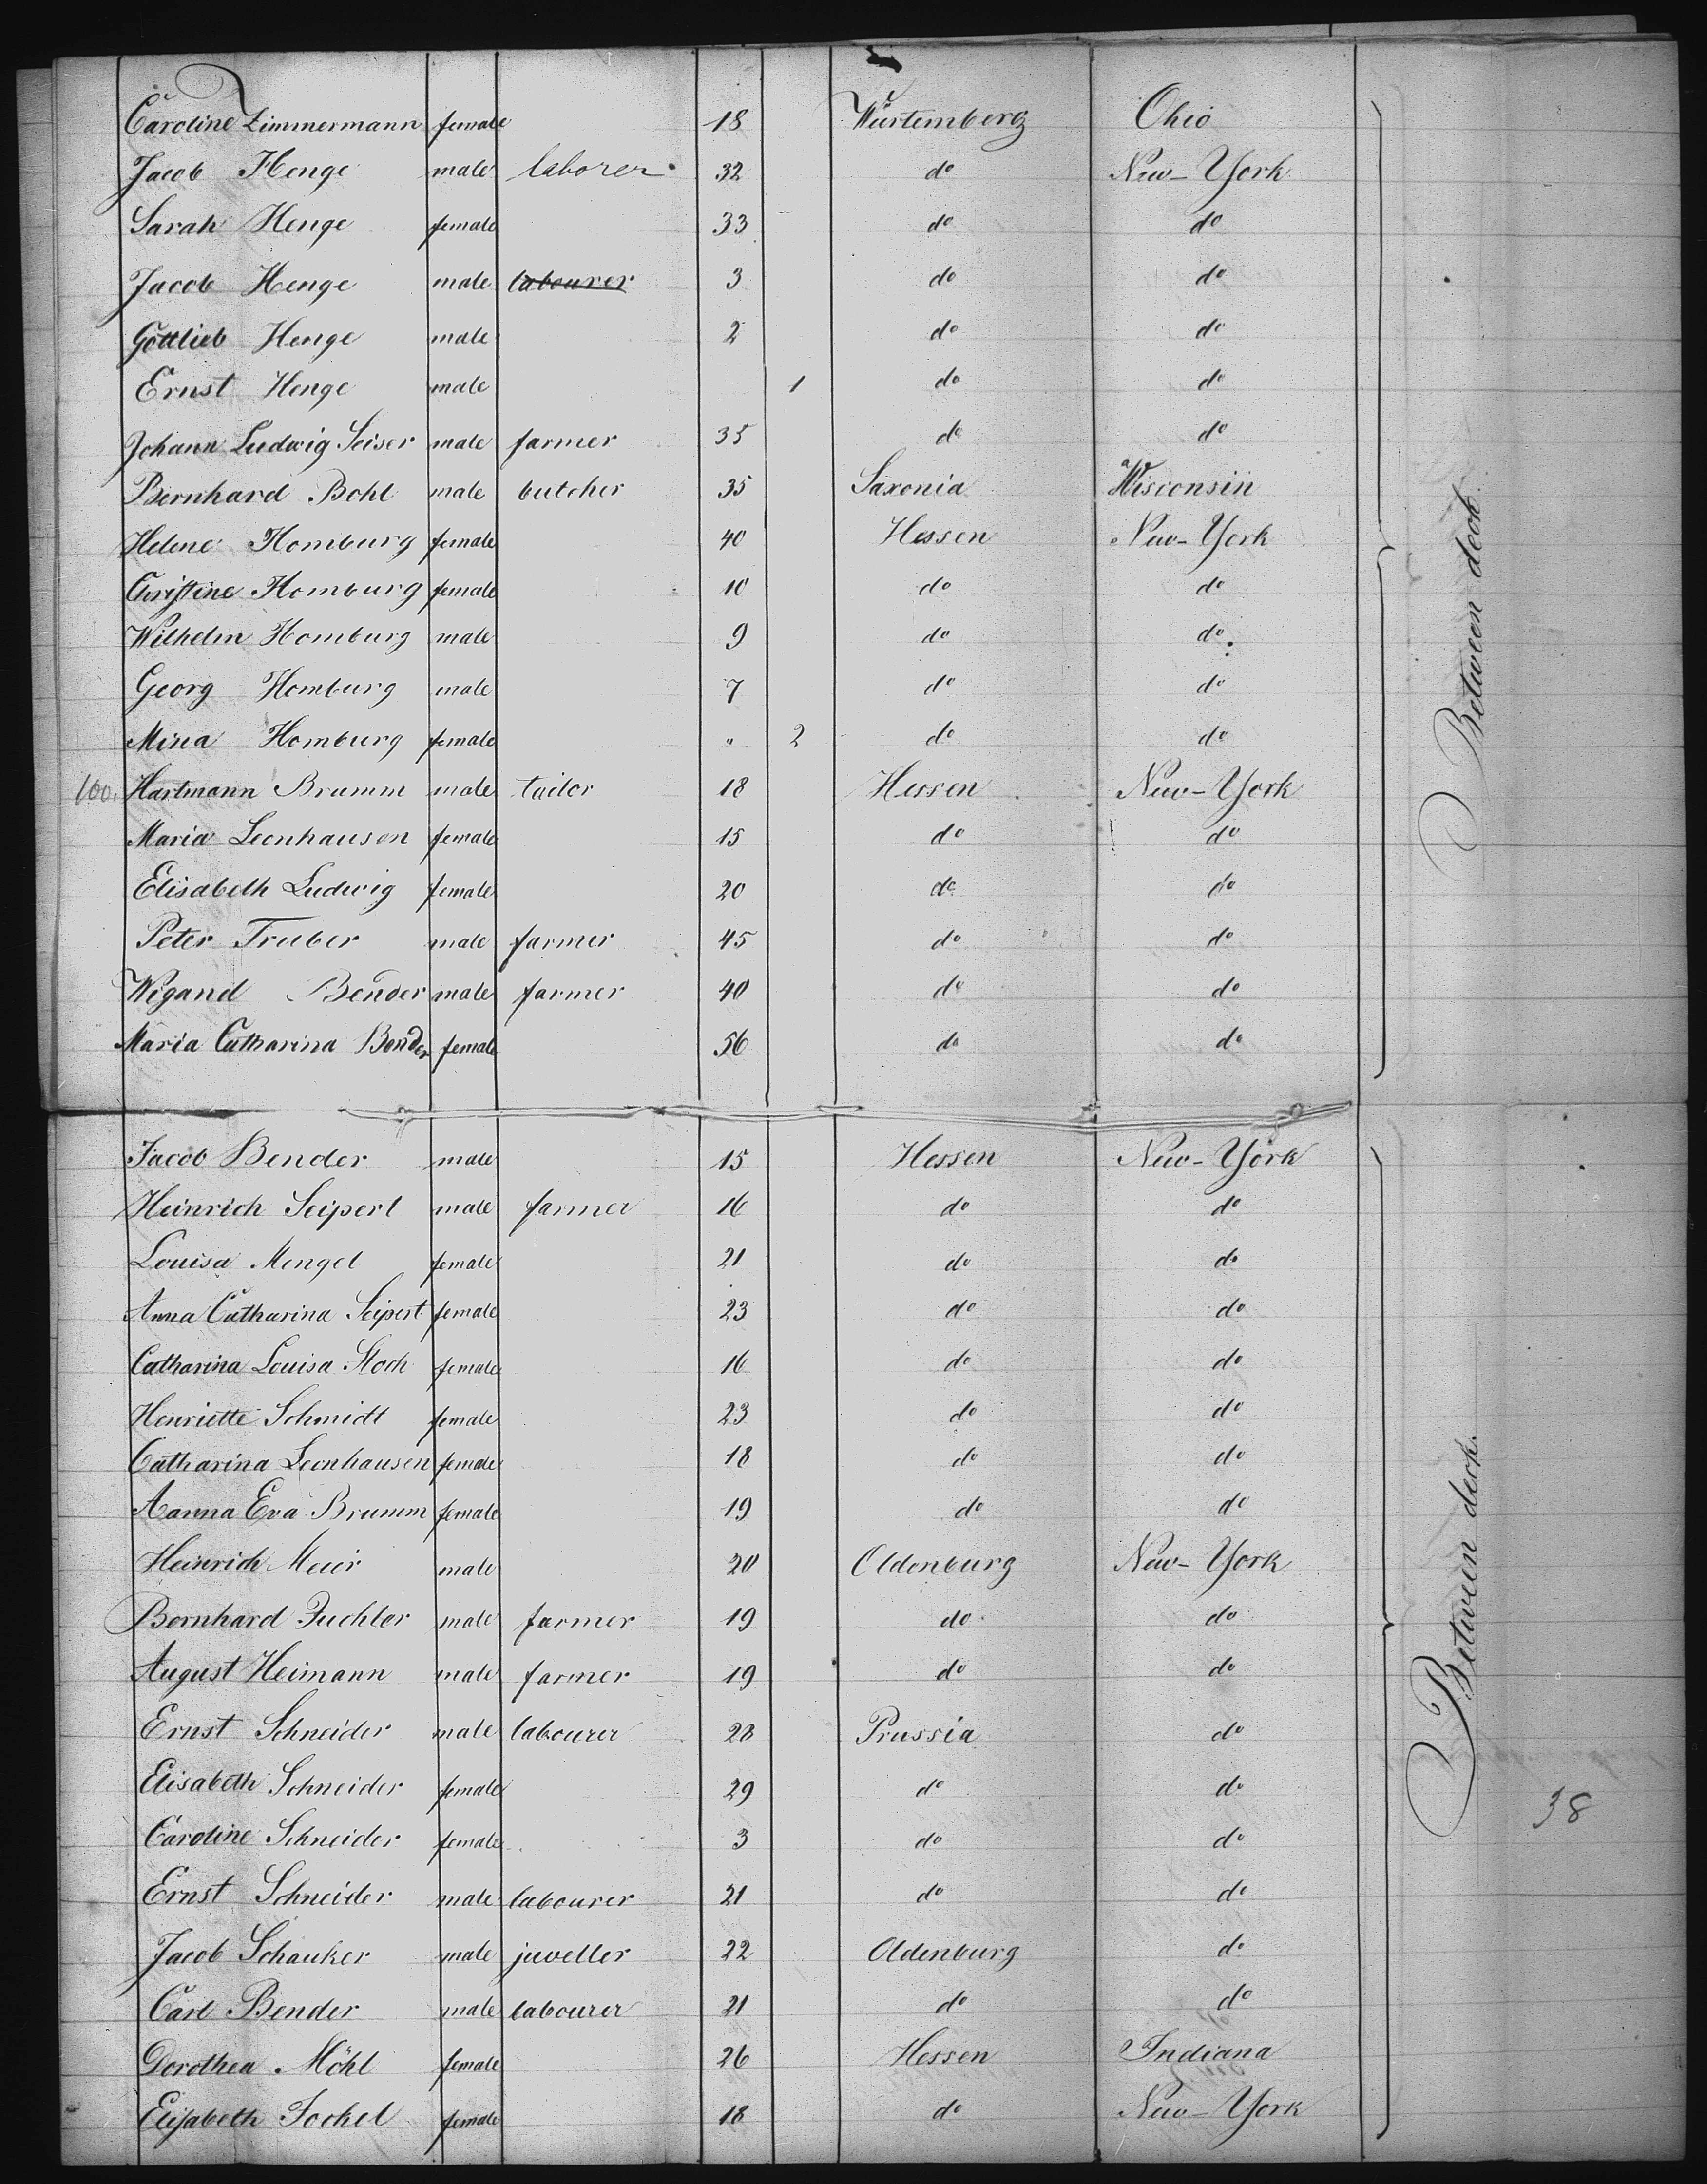 Caroline Zimmermann female 18 Würtemberg Ohio
Jacob Henge male laborer 32 do New-York
Sarah Henge female 33 do do
Jacob Henge male labourer 3 do do
Gottlieb Henge male 2 do do
Ernst Henge male 1 do do
Johann Ludwig Seiser male farmer 35 do do
Bernhard Bohl male butcher 35 Saxonia Wisconsin
Helene Homburg female 40 Hessen New-York
Christine Homburg female 10 do do
Wilhelm Homburg male 9 do do
Georg Homburg male 7 do do
Mina Homburg female " 2 do do
100. Hartmann Brumm male tailor 18 Hessen New-York
Maria Leonhausen female 15 do do
Elisabeth Ludwig female 20 do do
Peter Truber male farmer 45 do do
Wigand Bender male farmer 40 do do
Maria Catharina Bender female 56 do do
Between deck.
Jacob Bender male 15 Hessen New-York
Heinrich Seipert male farmer 16 do do
Louisa Mengel female 21 do do
Anna Catharina Seipert female 23 do do
Catharina Louisa Stoch female 16 do do
Henriette Schmidt female 23 do do
Catharina Leonhausen female 18 do do
Aanna Eva Brumm female 19 do do
Heinrich Meier male 20 Oldenburg New-York
Bernhard male farmer 19 do do
August Heimann male farmer 19 do do
Ernst Schneider male labourer 28 Prussia do
Elisabeth Schneider female 29 do do
Caroline Schneider female 3 do do
Ernst Schneider male labourer 21 do do
Jacob Schauker male juveller 22 Oldenburg do
Carl Bender male labourer 21 do do
Dorothea Möhl female 26 Hessen Indiana
Elisabeth Jockel female 18 do New-York
Between deck.
38